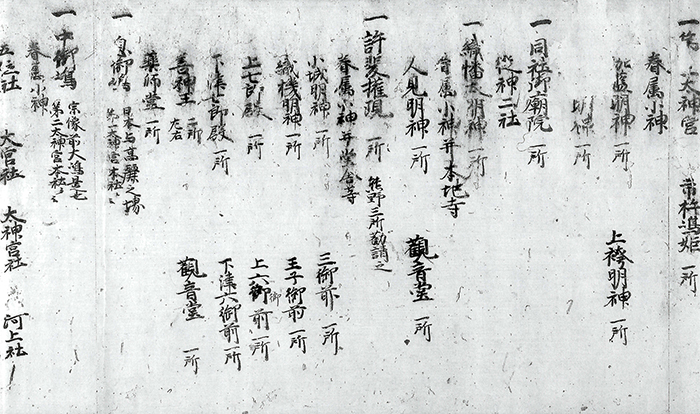 一 第一大神宮 市杵嶋姫 一所
眷属小神
明神 一所 上袴明神 一所
明神 一所
一 同社御廟院 一所
神二社
一 織幡大明神 一所
眷属小神并本地寺
人見明神 一所 觀音堂 一所
一 許斐權現 一所 熊野三所勸請之
眷属小神并堂舎等
小城明神 一所 三御前 一所
織機明神 一所 王子御前 一所
上七郎殿 一所 上六御前 一所
下津七郎殿 一所 下津六御前 一所
善神王 二所 左右 觀音堂 一所
藥師堂 一所
一 息御嶋 日本与高麗之堺
第一大神宮本社
一 中御嶋 宗像第大嶋是也
第二大神宮本社
眷属小神
五位社 大宮社 太神宮社 河上社